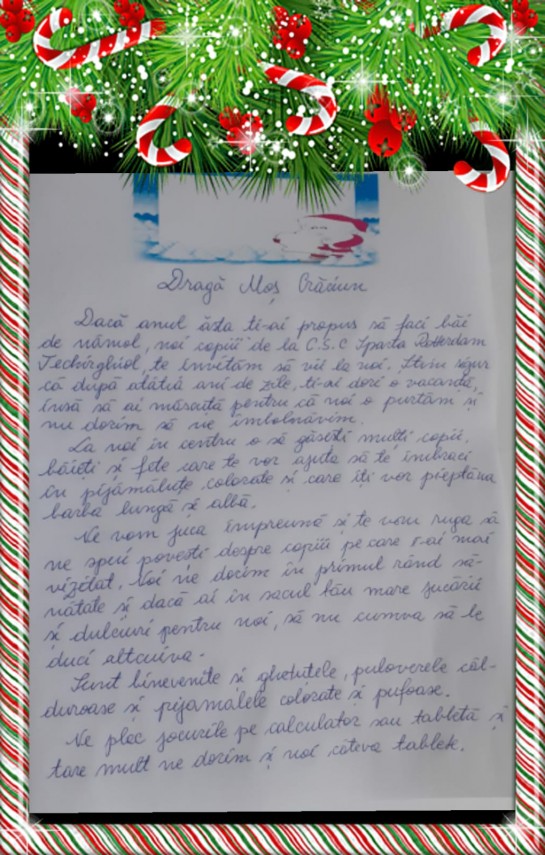 Dragă Moș Crăciun
Dacă anul ăsta ți-ai propus să faci băi
de nămol, noi copiii de la C.S.C Sparta Rotterdam
Techirghiol, te invităm să vii la noi. Știm sigur
că după atâția ani de zile, ți-ai dori o vacanță,
însă să ai măscuță pentru că noi o purtăm și
nu dorim să ne îmbolnăvim.
La noi în centru o să găsești mulți copii,
băieți și fete care te vor ajuta să te îmbraci
în pijămăluțe colorate și care îți vor pieptăna
barba lungă și albă.
Ne vom juca împreună și te vom ruga să
ne spui povești despre copiii pe care i-ai mai
vizitat. Noi ne dorim în primul rând să-
nătate și dacă ai în sacul tău mare jucării
și dulciuri pentru noi, să nu cumva să le
duci altcuiva.
Sunt binevenite și ghetuțele, puloverele căl-
duroase și pijamalele colorate și pufoase.
Ne plac jocurile pe calculator sau tabletă și
tare mult ne dorim și noi câteva tablete.